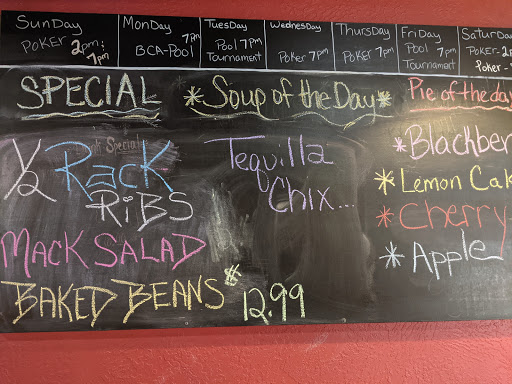 SunDay
Poker 2pm;
7pm
MonDay
7pm
BCA-Pool
TuesDay
Pool 7pm
Tournament
WednesDay
Poker 7pm
ThursDay
Poker 7pm
FriDay
Pool 7pm
Tournament
SaturDa
Poker-2
Poker-
SPECIAL
1/2 Rack
RiBS
MACK SALAD
BAKED BEANS $
12.99
*Soup of the Day*
Tequilla
Chix...
Pie of the day
*Blackber
*Lemon Cak
*Cherry
*Apple